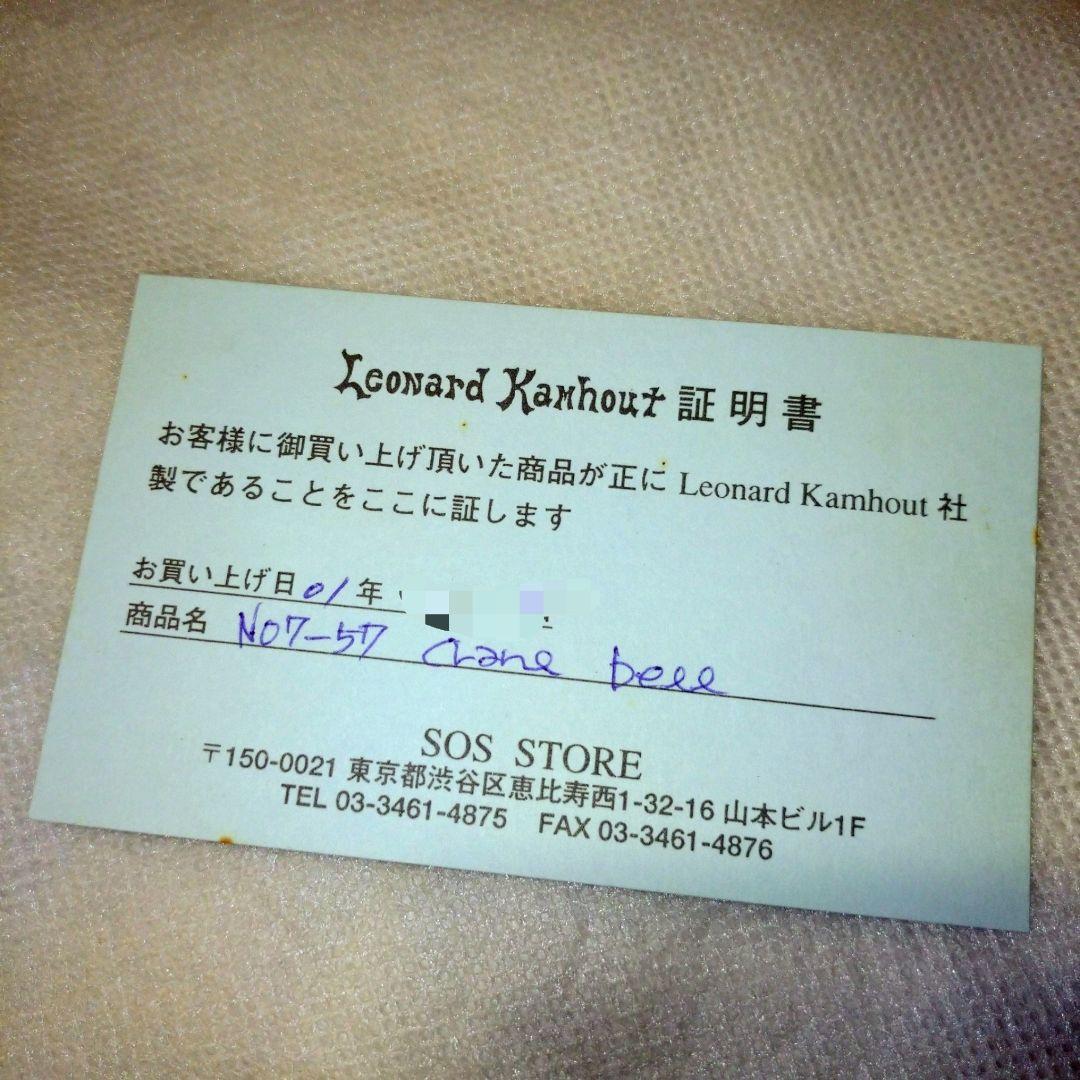 Leonard Kamhout 証明書
お客様に御買い上げ頂いた商品が正に Leonard Kamhout 社
製であることをここに証します
お買い上げ日 01年
商品名 N07-57 Crane bell
SOS STORE
〒150-0021 東京都渋谷区恵比寿西1-32-16 山本ビル1F
TEL 03-3461-4875 FAX 03-3461-4876